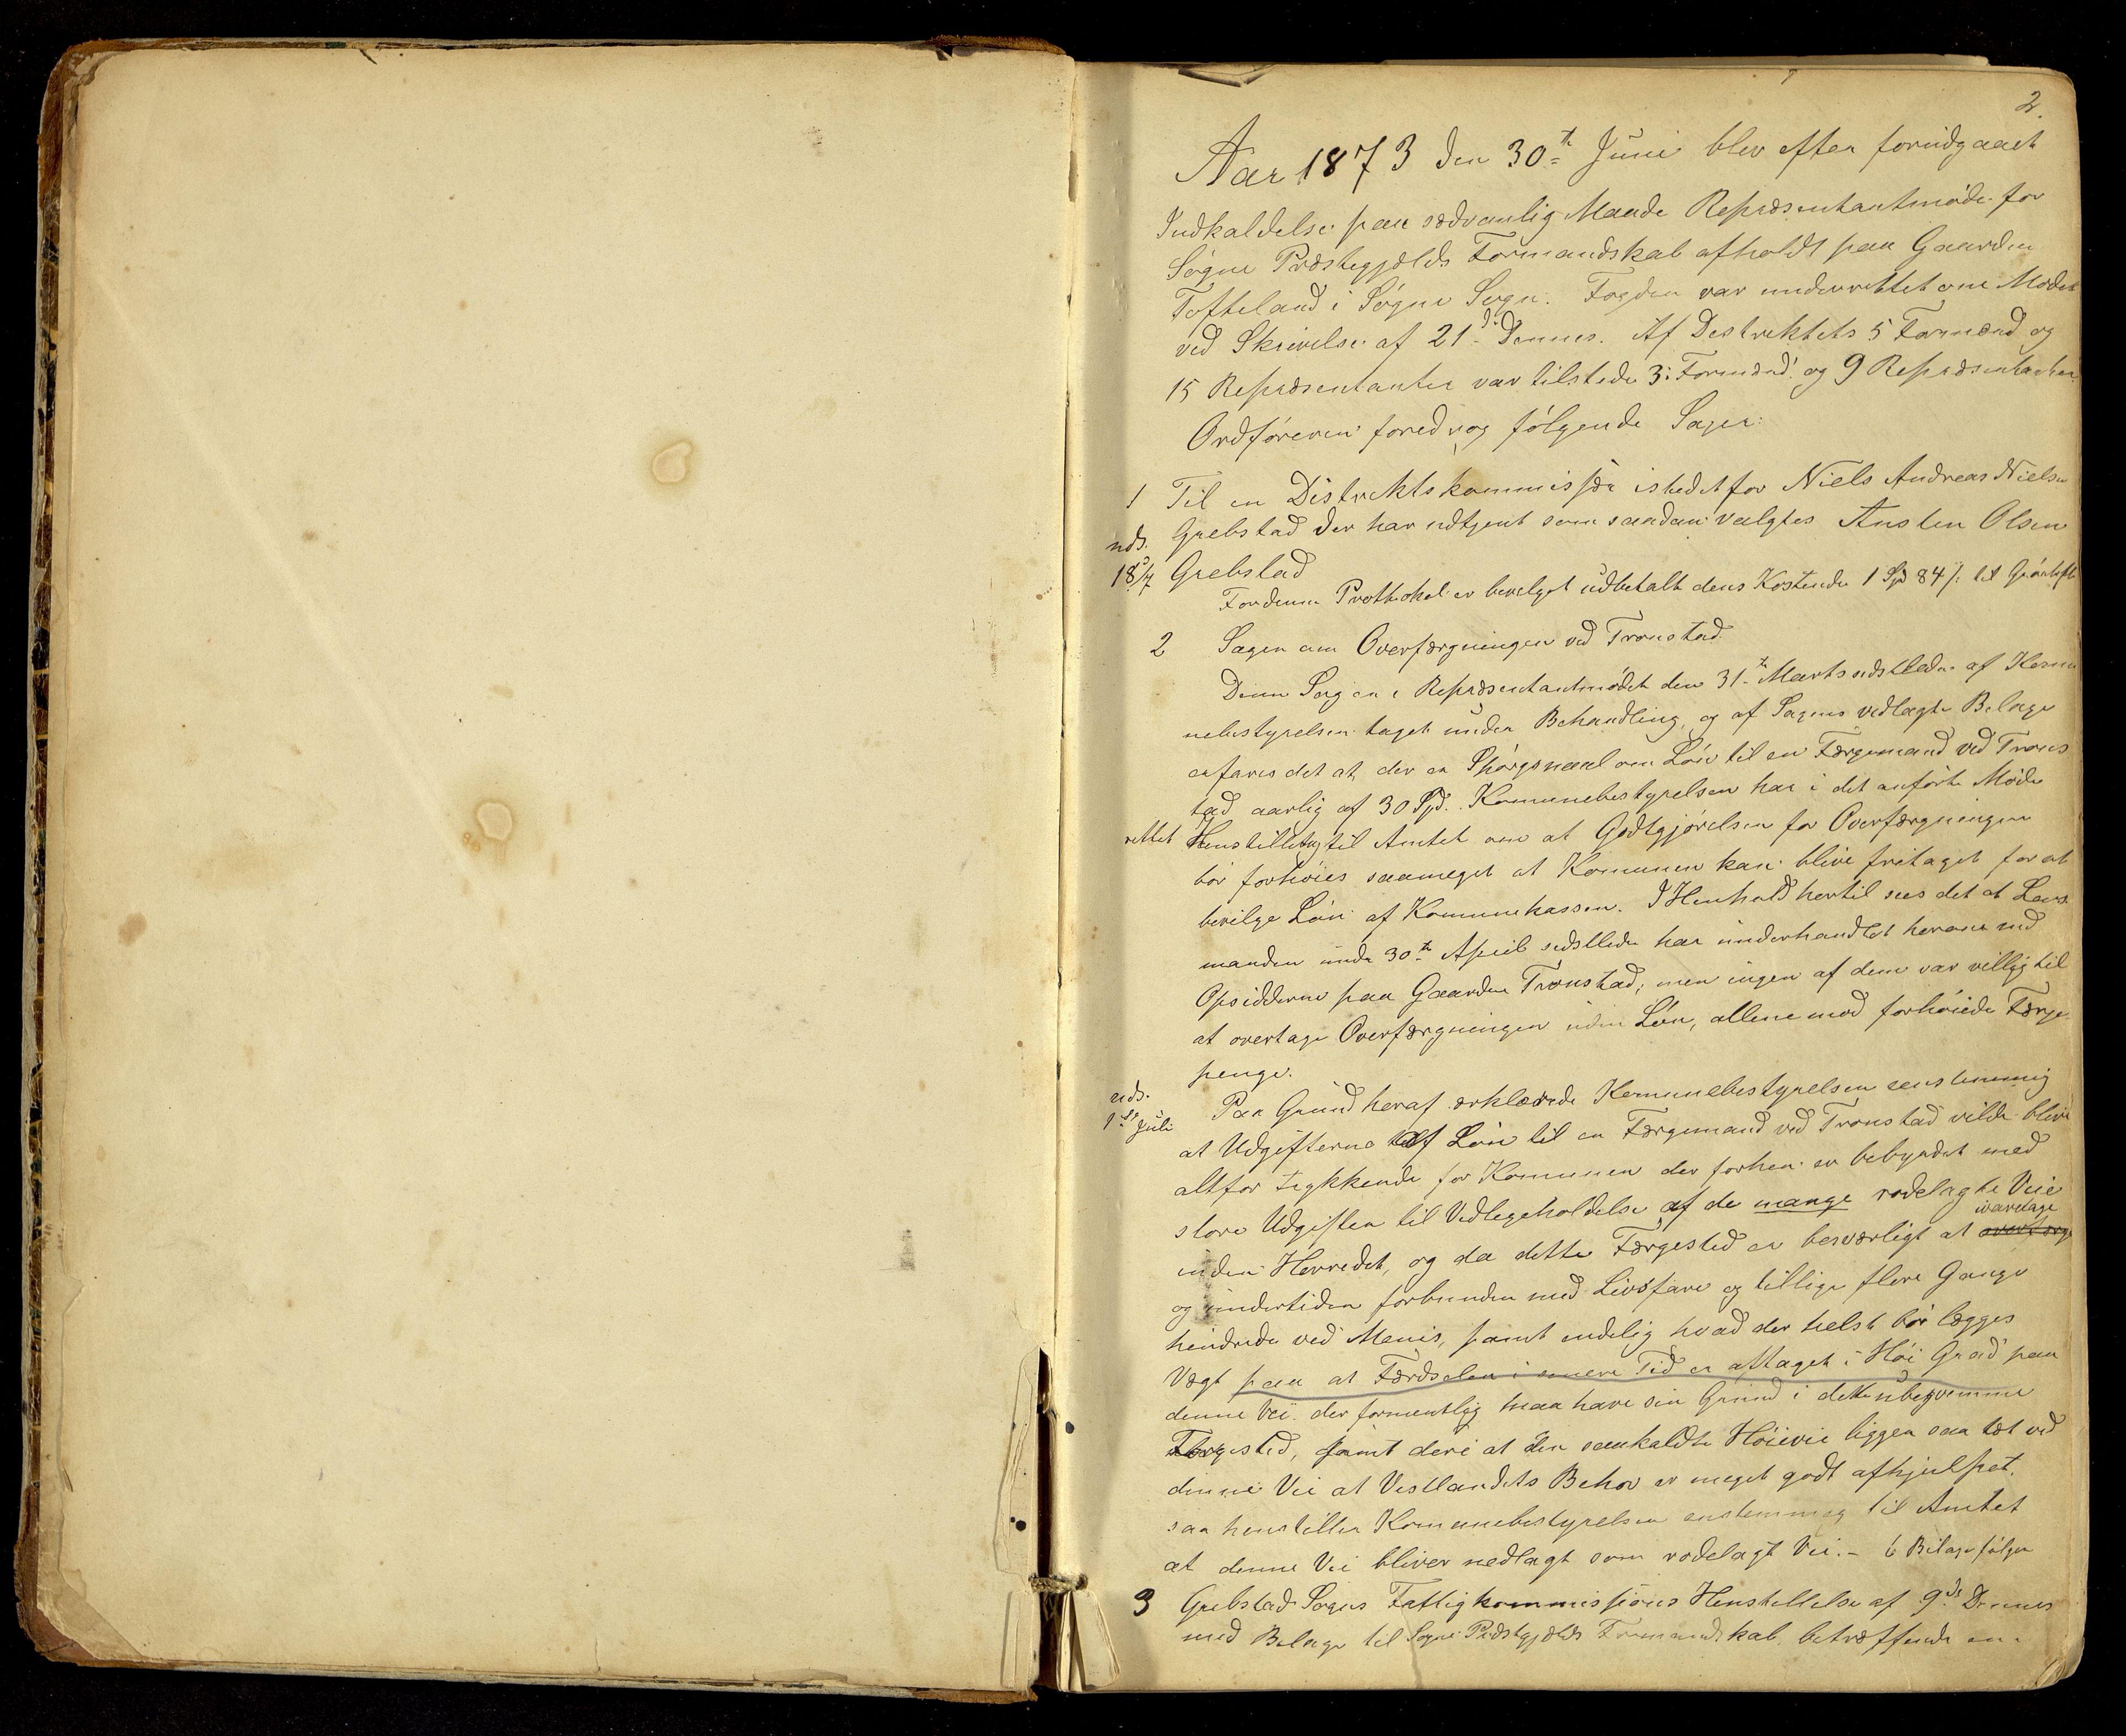 2.
Aar 1873 den 30te Juni blev efter forudgaaet
Indkaldelse paa sædvanlig Maade Repræsentantmøde for
Søgne Præstegjælds Formandskab afholdt paa Gaarden
Tofteland i Søgne Sogn. Fogden var underrettet om Mødet
ved Skrivelse af 21de Dennes. Af Destriktets 5 Formænd og
15 Repræsentanter var tilstede 3 Formænd og 9 Repræsentanter.
Ordføreren foredrog følgende Sager:
1 Til en Distriktskommissær istedetfor Niels Andreas Nielsen
uds. Grebstad der har udtjent som saadan valgtes Austen Olsen
18/7 Grebstad
For denne Prothokol er bevilget udbetalt dens Kostende 1 Spd 84 s. til
2 Sagen om Overfærgningen ved Tronstad.
Denne Sag er i Repræsentantmødet den 31te Marts sidstleden af Kommu
nebestyrelsen taget under Behandling, og af Sagens vedlagte Belage
erfares det at der er Spørgsmaal om Løn til en Færgemand ved Trons
tad aarlig af 30 Spd. Komunebestyrelsen har i det anførte Møde
rettet Henstilling til Amtet om at Godtgjørelsen for Overfærgningen
bør forhøies saameget at Komunen kan blive fritaget for at
bevilge Løn af Komunekassen. I Henhold hertil sees det at Lens
manden under 30te April sidstleden har underhandlet herom med
Opsidderne paa Gaarden Tronstad, men ingen af dem var villig til
at overtage Overfærgningen uden Løn, allene mod forhøiede Færge
penge.
uds.
1ste Juli Paa Grund heraf erklærede Komunebestyrelsen eenstemmig
at Udgifterne af Løn til en Færgemand ved Tronstad vilde blive
altfor trykkende for Komunen der forhen er bebyrdet med
store Udgifter til Vedlegeholdelse af de mange rodelagte Veie
inden Herredet, og da dette Færgested er besværligt at overfærge ivaretage
og undertiden forbunden med Livsfare og tillige flere Gange
hindrede ved Menis, samt endelig hvad der helst bør lægges
Vægt paa at Færdselen i senere Tid er aftaget i Høi Grad paa
denne Vei der formentlig maa have sin Grund i dette ubeqvemme
Færgested, samt deri at den saakaldte Høievei ligger saa tæt ved
denne Vei at Vestlandets Behov er meget godt afhjulpet,
saa henstiller Komunebestyrelsen enstemmig til Amtet
at denne Vei bliver nedlagt som rodelagt Vei. – 6 Bilage følger
3 Grebstad Sogns Fattigkommissions Henstillelse af 9de Dennes
med Belage til Sogne Præstegjælds Formandskab betræffende en